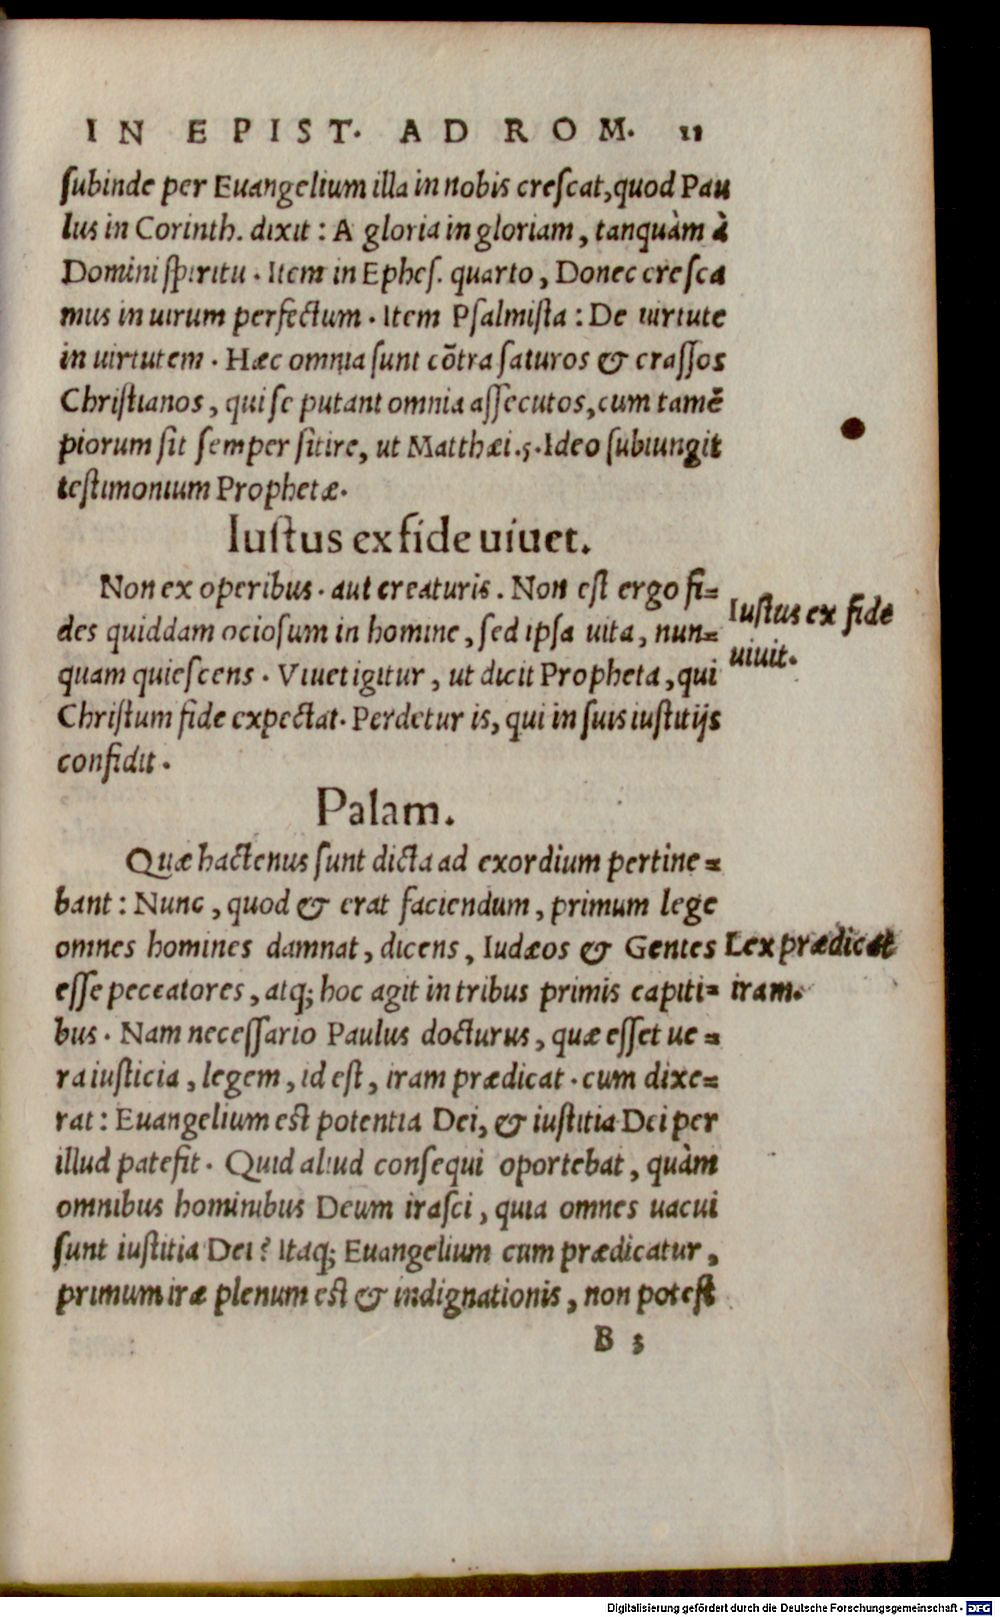 IN EPIST. AD ROM. 11
subinde per Euangelium illa in nobis crescat, quod Pau
lus in Corinth. dixit : A gloria in gloriam, tanquàm à
Domini spiritu. Item in Ephes. quarto, Donec cresca
mus in uirum perfectum. Item Psalmista : De uirtute
in uirtutem. Hæc omnia sunt cõtra saturos & crassos
Christianos, qui se putant omnia assecutos, cum tamẽ
piorum sit semper sitire, ut Matthæi.5. Ideo subiungit
testimonium Prophetæ.
Iustus ex fide uiuet.
Non ex operibus. aut creaturis. Non est ergo fi=
des quiddam ociosum in homine, sed ipsa uita, nun=
quam quiescens. Viuet igitur, ut dicit Propheta, qui
Christum fide expectat. Perdetur is, qui in suis iustitijs
confidit.
Iustus ex fide
uiuit.
Palam.
Quæ hactenus sunt dicta ad exordium pertine=
bant : Nunc, quod & erat faciendum, primum lege
omnes homines damnat, dicens, Iudæos & Gentes
esse peccatores, atq; hoc agit in tribus primis capiti=
bus. Nam necessario Paulus docturus, quæ esset ue=
ra iusticia, legem, id est, iram prædicat. cum dixe=
rat : Euangelium est potentia Dei, & iustitia Dei per
illud patefit. Quid aliud consequi oportebat, quàm
omnibus hominibus Deum irasci, quia omnes uacui
sunt iustitia Dei? Itaq; Euangelium cum prædicatur,
primum iræ plenum est & indignationis, non potest
Lex prædicat
iram.
B 3
Digitalisierung gefördert durch die Deutsche Forschungsgemeinschaft - DFG